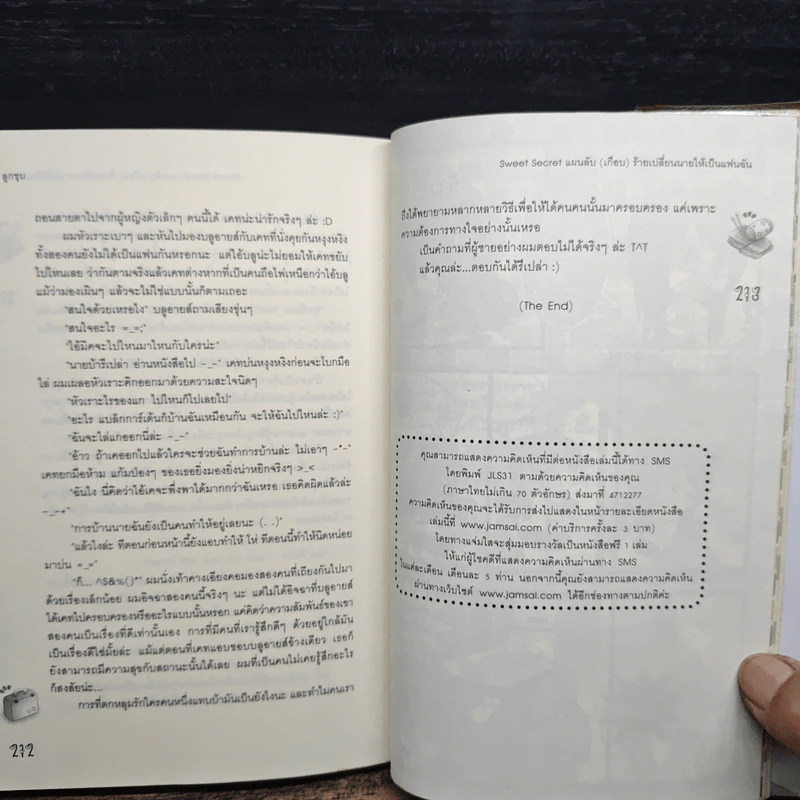 ลูกชุบ
ถอนสายตาไปจากผู้หญิงตัวเล็กๆ คนนี้ได้ เคทน่ะน่ารักจริงๆ ล่ะ :D
ผมหัวเราะเบาๆ และหันไปมองบลูอายส์กับเคทที่นั่งคุยกันหงุงหงิง
ทั้งสองคนยังไม่ได้เป็นแฟนกันหรอกนะ แต่ไอ้บลูน่ะไม่ยอมให้เคทขยับ
ไปไหนเลย ว่ากันตามจริงแล้วเคทต่างหากที่เป็นคนถือไพ่เหนือกว่าไอ้บลู
แม้ว่ามองเผินๆ แล้วจะไม่ใช่แบบนั้นก็ตามเถอะ
"สนใจด้วยเหรอไง" บลูอายส์ถามเสียงขุ่นๆ
"สนใจอะไร =_=;"
"ไอ้มิคจะไปไหนมาไหนกับใครน่ะ"
"นายบ้ารึเปล่า อ่านหนังสือไป -_-" เคทบ่นหงุงหงิงก่อนจะโบกมือ
ไล่ ผมเผลอหัวเราะคิกออกมาด้วยความสะใจนิดๆ
"หัวเราะไรของแก ไปไหนก็ไปเลยไป"
"อะไร แบล็กการ์เด้นก็บ้านฉันเหมือนกัน จะให้ฉันไปไหนล่ะ :)"
"ฉันจะไล่แกออกนี่ล่ะ -_-"
"อ้าว ถ้าเคออกไปแล้วใครจะช่วยฉันทำการบ้านล่ะ ไม่เอาๆ -*-"
เคทยกมือห้าม แก้มป่องๆ ของเธอยิ่งมองยิ่งน่าหยิกจริงๆ >_<
"ฉันไง นี่คิดว่าไอ้เคจะพึ่งพาได้มากกว่าฉันเหรอ เธอคิดผิดแล้วล่ะ
-_-+"
"การบ้านนายฉันยังเป็นคนทำให้อยู่เลยนะ (. .)"
"แล้วไงล่ะ ทีตอนก่อนหน้านี้ยังแอบทำให้ โห่ ทีตอนนี้ทำให้นิดหน่อย
มาบ่น =_="
"ก็... ^S&%()*" ผมนั่งเท้าคางเอียงคอมองสองคนที่เถียงกันไปมา
ด้วยเรื่องเล็กน้อย ผมอิจฉาสองคนนี้จริงๆ นะ แต่ไม่ได้อิจฉาที่บลูอายส์
ได้เคทไปครอบครองหรืออะไรแบบนั้นหรอก แค่คิดว่าความสัมพันธ์ของเขา
สองคนเป็นเรื่องที่ดีเท่านั้นเอง การที่มีคนที่เรารู้สึกดีๆ ด้วยอยู่ใกล้มัน
เป็นเรื่องดีใช่มั้ยล่ะ แม้แต่ตอนที่เคทแอบชอบบลูอายส์ข้างเดียว เธอก็
ยังสามารถมีความสุขกับสถานะนั้นได้เลย ผมที่เป็นคนไม่เคยรู้สึกอะไร
ก็สงสัยน่ะ...
การที่ตกหลุมรักใครคนหนึ่งแทบบ้ามันเป็นยังไงนะ และทำไมคนเรา
272
Sweet Secret แผนลับ (เกือบ) ร้ายเปลี่ยนนายให้เป็นแฟนฉัน
ถึงได้พยายามหลากหลายวิธีเพื่อให้ได้คนคนนั้นมาครอบครอง แค่เพราะ
ความต้องการทางใจอย่างนั้นเหรอ
เป็นคำถามที่ผู้ชายอย่างผมตอบไม่ได้จริงๆ ล่ะ T^T
แล้วคุณล่ะ...ตอบกันได้รึเปล่า :)
273
(The End)
คุณสามารถแสดงความคิดเห็นที่มีต่อหนังสือเล่มนี้ได้ทาง SMS
โดยพิมพ์ JLS31 ตามด้วยความคิดเห็นของคุณ
(ภาษาไทยไม่เกิน 70 ตัวอักษร) ส่งมาที่ 4712277
ความคิดเห็นของคุณจะได้รับการส่งไปแสดงในหน้ารายละเอียดหนังสือ
เล่มนี้ที่ www.jamsai.com (ค่าบริการครั้งละ 3 บาท)
โดยทางแจ่มใสจะสุ่มมอบรางวัลเป็นหนังสือฟรี 1 เล่ม
ให้แก่ผู้โชคดีที่แสดงความคิดเห็นผ่านทาง SMS
ในแต่ละเดือน เดือนละ 5 ท่าน นอกจากนี้คุณยังสามารถแสดงความคิดเห็น
ผ่านทางเว็บไซต์ www.jamsai.com ได้อีกช่องทางตามปกติค่ะ